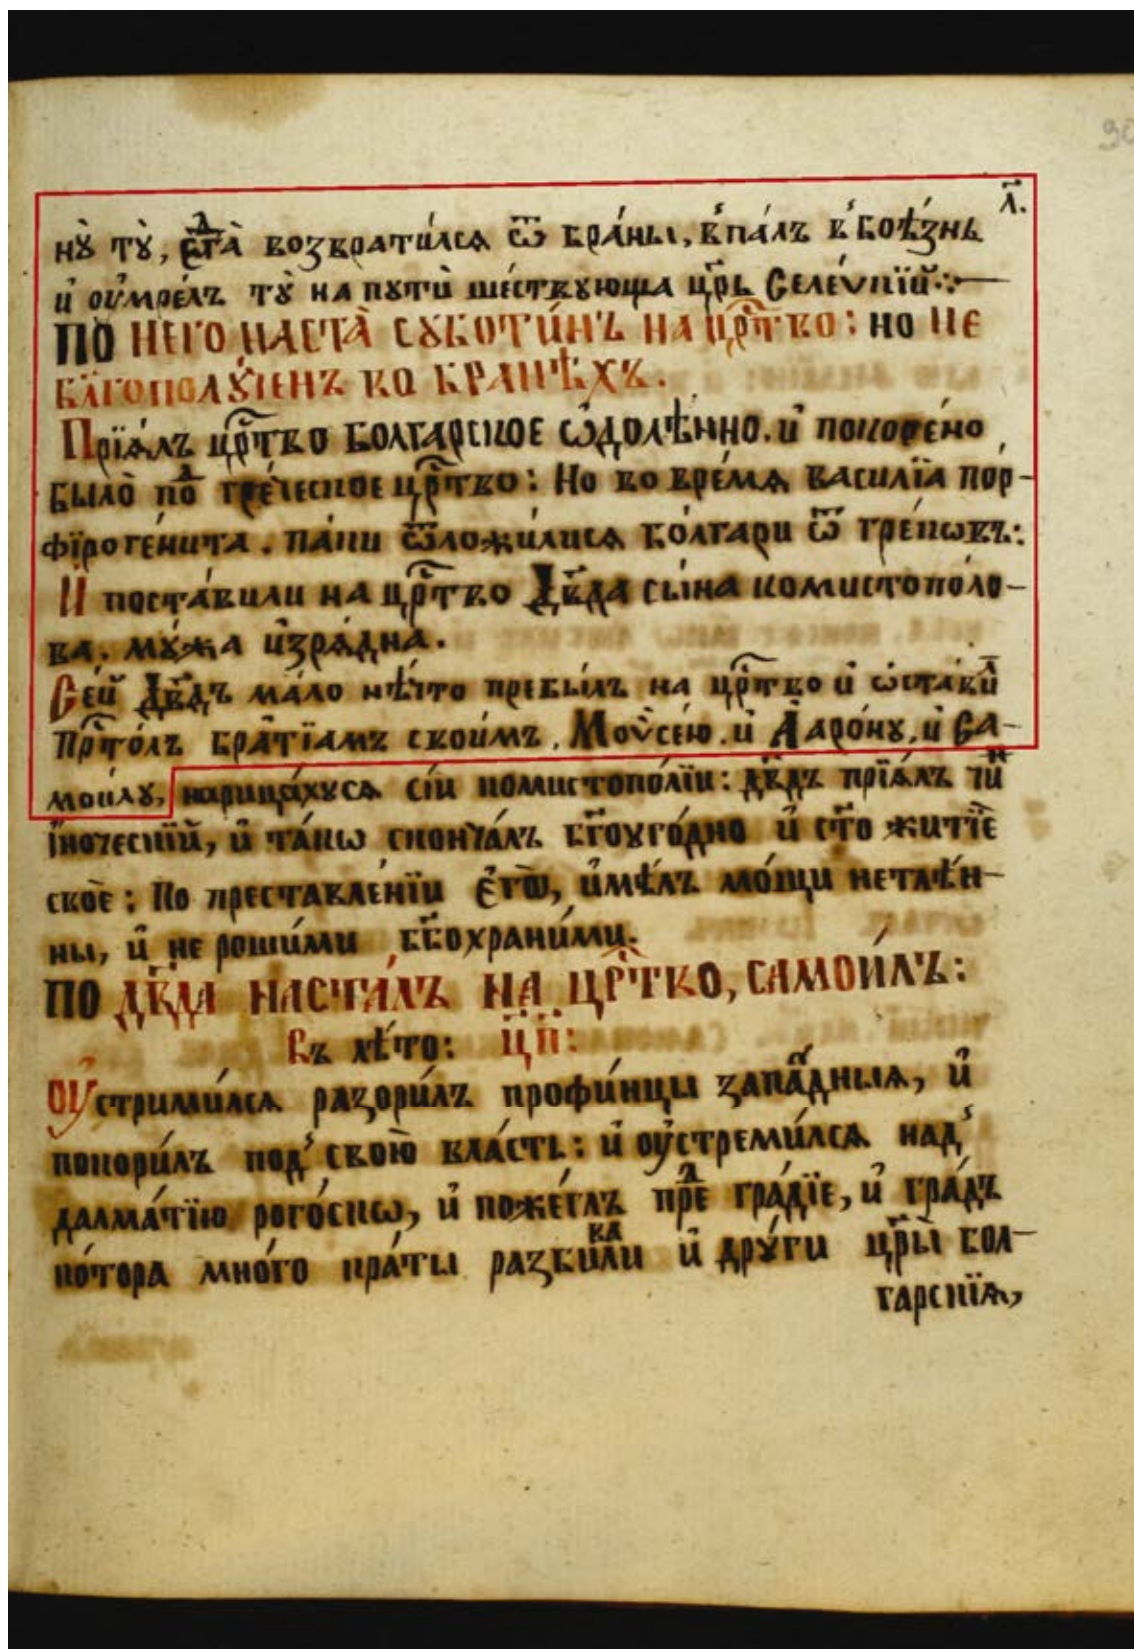 л҃.
нꙋ̀ тꙋ̀, єгдⷣа̀ возвратилсѧ ѿ бра́ны, в̾па́лъ в̾ боѣ́знь
и҆ ѹ҆мре́лъ тꙋ̀ на пꙋтѝ ше́ствꙋюща цр҃ь Селе́ѵкїй:~
ПО НЕГО НАСТА̀ СꙊБОТИ́НЪ НА ЦР҃ТВО: НО НЕ
БЛ҃ГОПОЛꙊ́ЧЕНЪ ВО БРАНѢ́ХЪ.
Прїѧ́лъ цр҃тво болгарское ѡ҆долѣ́нно. и҆ покоре́но
было̀ поⷣ гре́ческое цр҃тво: Но во вре́мѧ василїа пор-
фїроге́нита. па́ки ѿложи́лисѧ бо́лгари ѿ гре́ковъ:
И҆ поста́вили на цр҃тво Дв҃да сы́на комистопо́ло-
ва. мꙋ́жа и҆зрѧ́дна.
Се́й Дв҃дъ ма́ло нѣ́что пребы́лъ на цр҃тво и҆ ѡ҆ста́виⷧ
пр҃то́лъ бра́тїамъ свои́мъ. Моѵсе́ю. и҆ А҆аро́нꙋ. и҆ Са-
мои́лꙋ, нарица́хꙋсѧ сі́и комистопо́лїи: дв҃дъ прїѧ́лъ чиⷩ
їноческїй, и҆ та́кѡ сконча́лъ бг҃оуго́дно и҆ ст҃о житїе
скоѐ: По преставле́нїи є҆гѡ̀, и҆мѣ́лъ мо́щи нетлѣ́н-
ны, и҆ не роши́ми бг҃охрани́ми.
ПО ДВ҃ДА НАСТА́ЛЪ НА ЦР҃ТВО, САМОИ́ЛЪ:
Въ лѣ́то: ц҃п҃:
Оу҆стрими́лсѧ разори́лъ профи́нцы запа́дныѧ, и҆
покори́лъ под̾ свою̀ вла́сть: и҆ оу҆стреми́лсѧ над̾
далма́тїю рого́скѡ, и҆ поже́глъ преⷣ гра́дїе, и҆ гра́дъ
ко́тора мно́го кра́ты разбиваⷧи и҆ дрꙋ́ги цр҃ы̀ бол-
гарскїѧ,